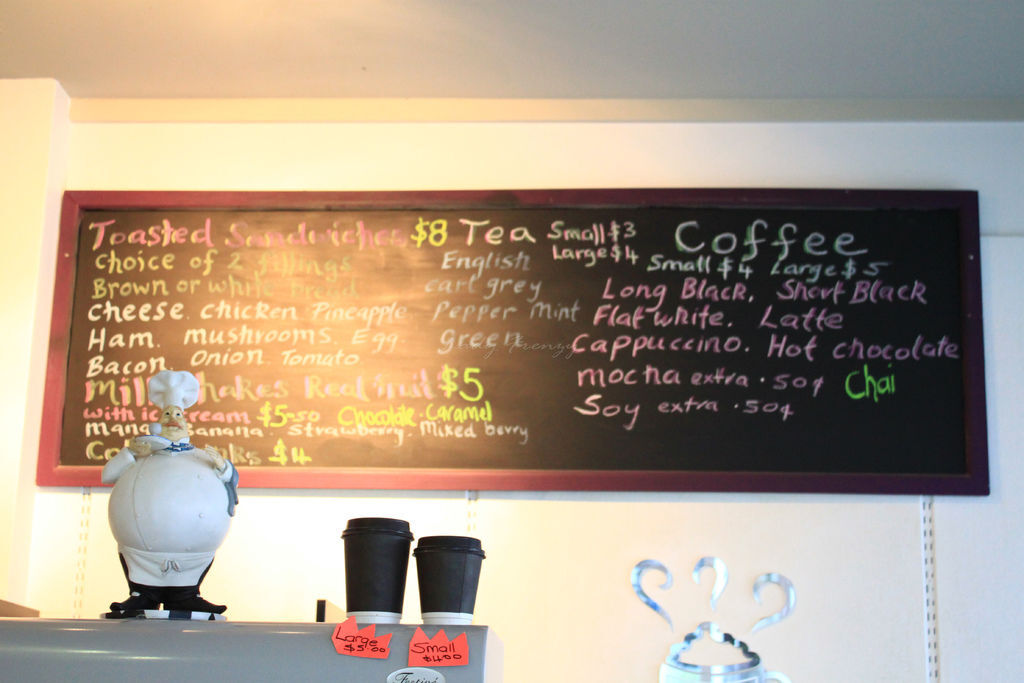 Toasted Sandwiches $8
Choice of 2 fillings
Brown or white bread
cheese. chicken Pineapple.
Ham. mushrooms. Egg.
Bacon. Onion. Tomato.
Real fruit $5
with ice cream $5-50 Chocolate. Caramel
Banana. Strawberry. Mixed berry
$4
Tea Small $3
Large $4
English
earl grey
Pepper Mint
green
Coffee
Small $4 Large $5
Long Black. Short Black
Flat white. Latte
Cappuccino. Hot chocolate
mocha extra .50¢ Chai
Soy extra .50¢
Large
$5.00
Small
$4.00